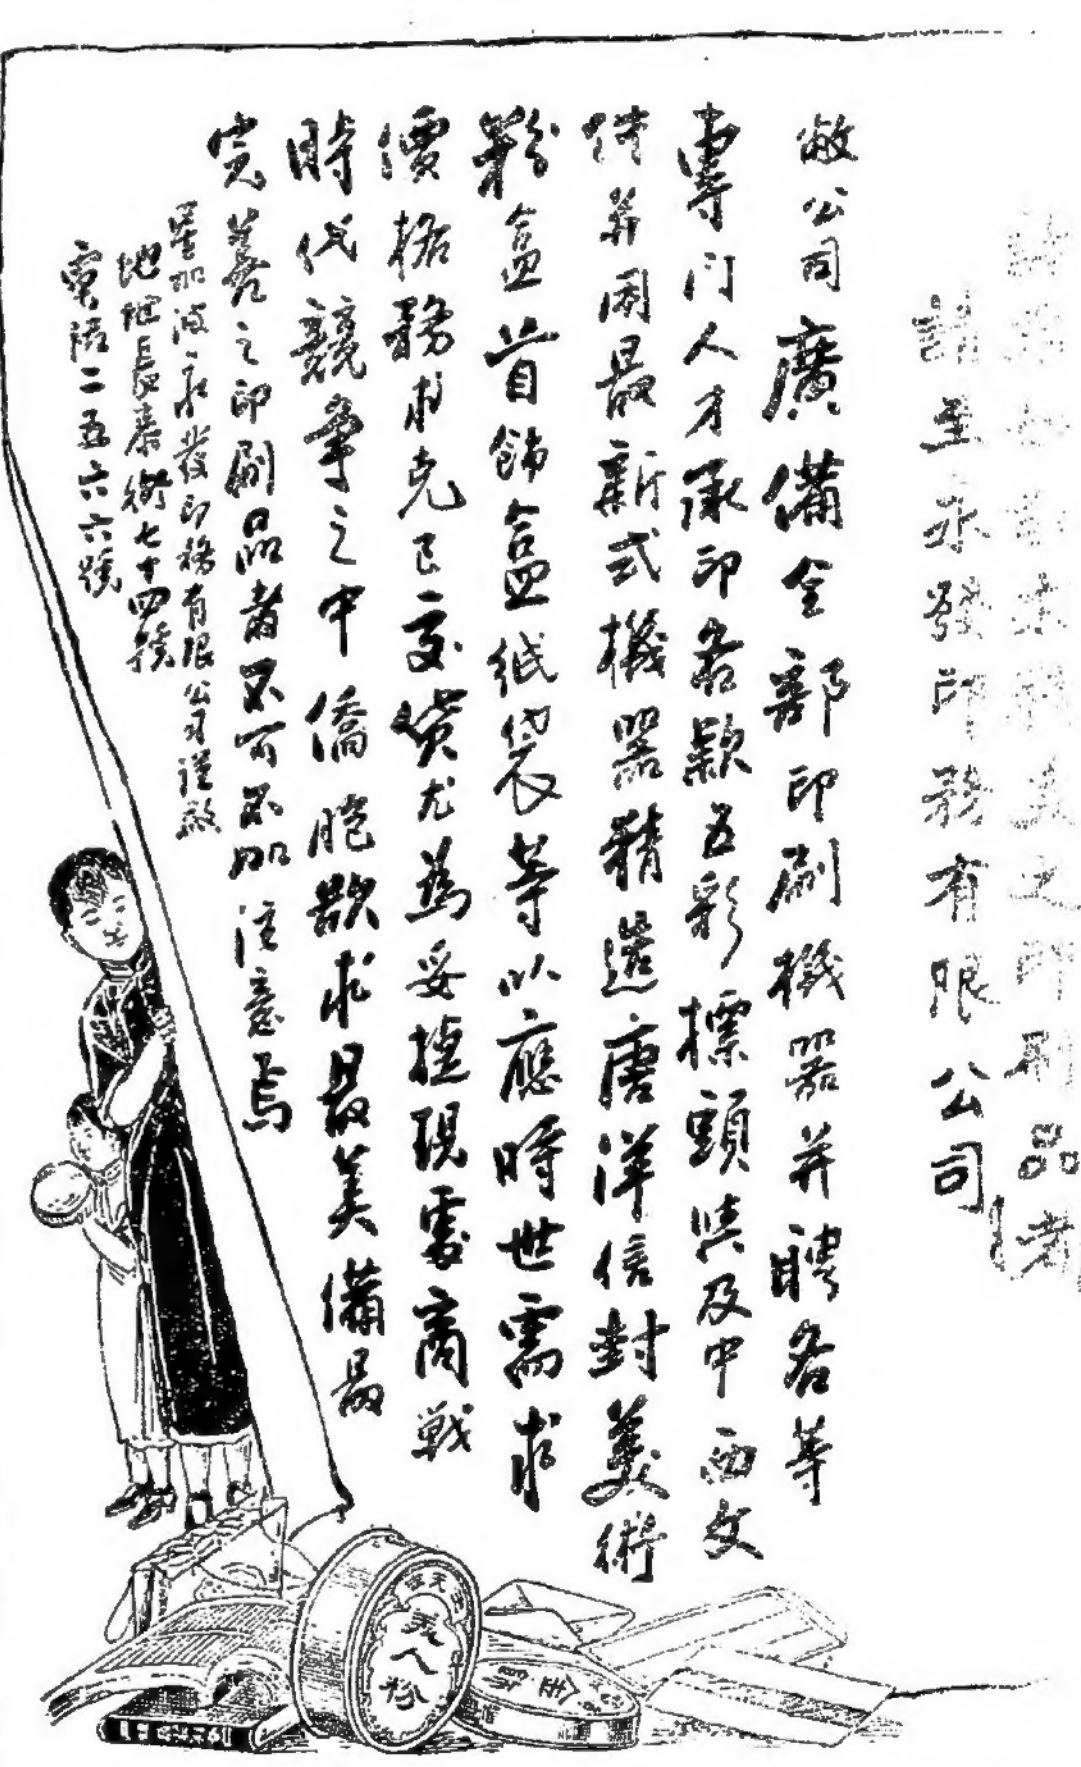 求精美之印刷品者
請至永發印務有限公司
敝公司廣備全部印刷機器并聘各等
專門人才承印各款五彩標頭與及中西文
件并用最新式機器精選唐洋信封美術
粉盒首飾盒紙袋等以應時世需求
價格務求克己交貨尤為妥捷現處商戰
時代競爭之中僑胞欲求最美備最
完善之印刷品者不可不加注意焉
星加波永發印務有限公司謹啟
地址長泰街七十四號
電話二五六六號
美人粉